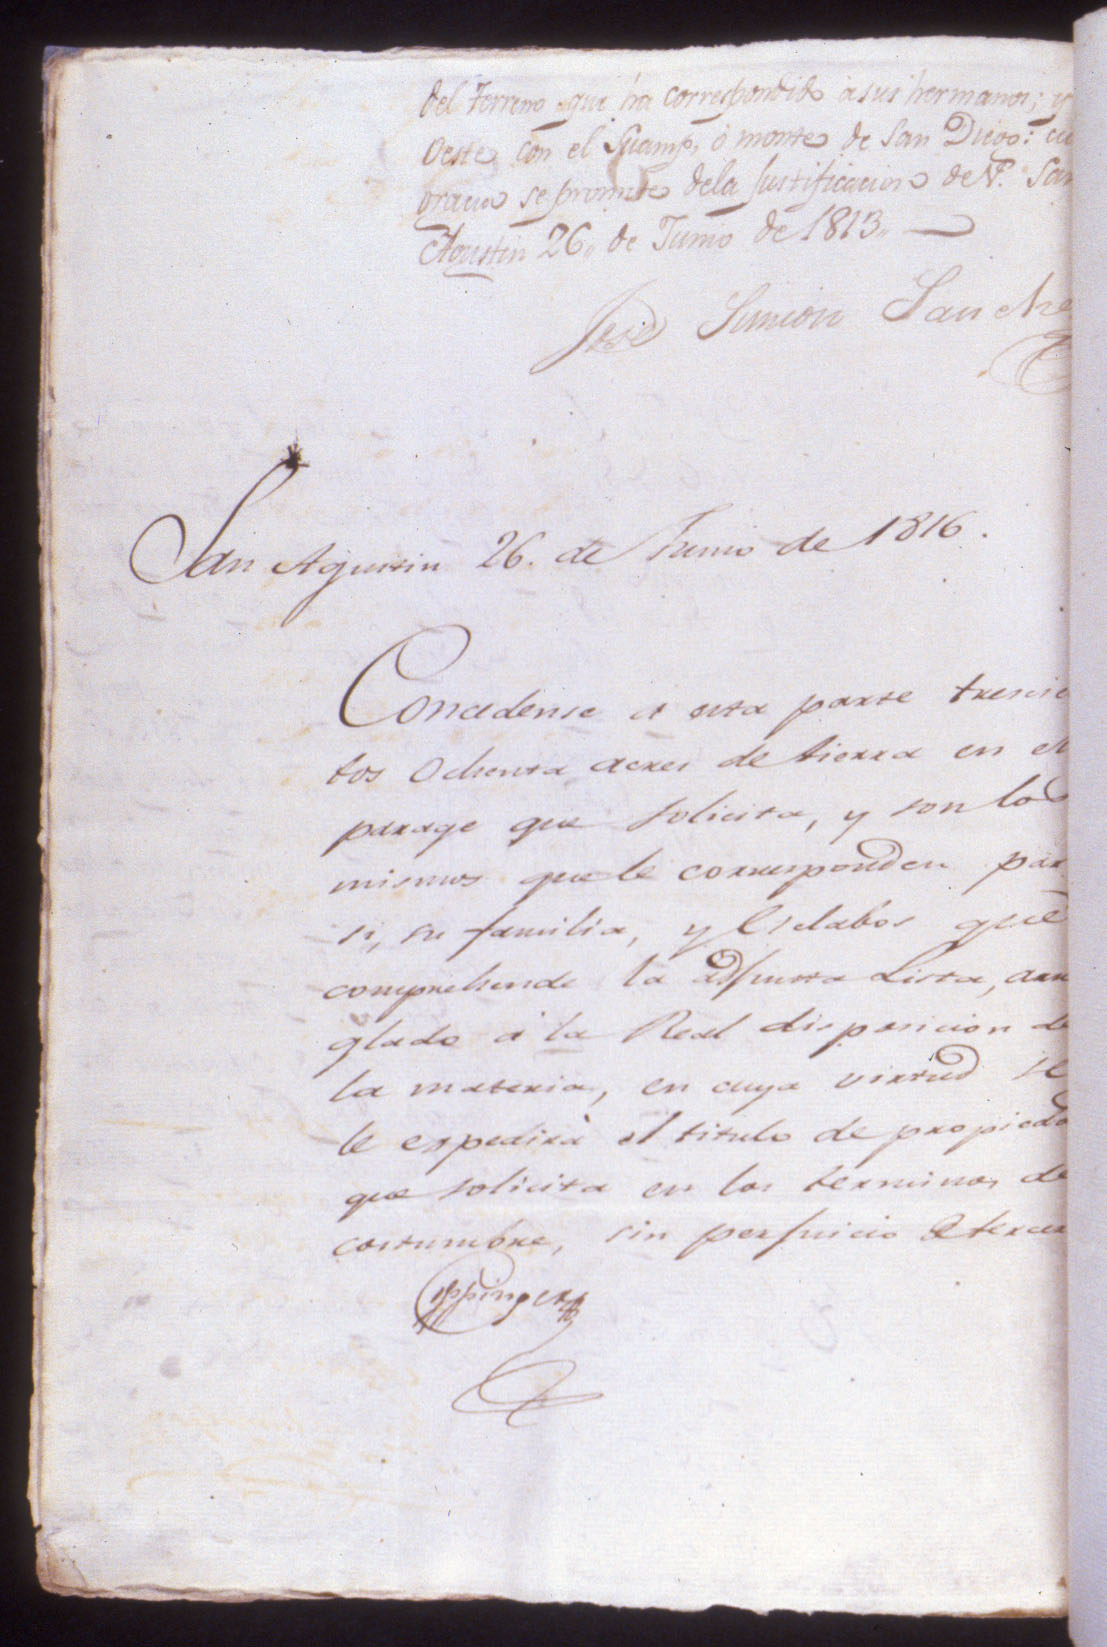 del Terreno que ha correspondido a sus hermanos; y
Oeste con el Suamp, ó monte de San Diego: cu
gracia se promete dela Justificacion de V.S. San
Agustin 26,, de Junio de 1813,,
José Simeon Sanche
San Agustin 26. de Junio de 1816.
Concedense á esta parte trescie
tos Ochenta acres de tierra en el
parage que solicita, y son lo
mismos que le corresponden par
si, su familia, y Esclabos que
comprehende la adjunta Lista, arre
glado á la Real disposicion de
la materia, en cuya virtud se
le expedirá el titulo de propieda
que solicita en los terminos de
costumbre, sin perjuicio de tercer